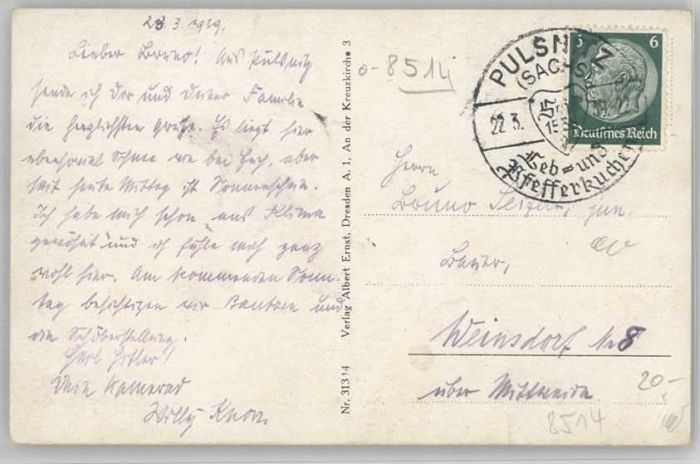 22.3.1939.
Lieber Bruno! Aus Pulsnitz
sende ich Dir und Deiner Familie
die herzlichsten Grüße. Es liegt hier
überall Schnee wie bei Euch, aber
seit heute Mittag ist Sonnenschein.
Ich habe mich schon ans Klima
gewöhnt und ich fühle mich ganz
wohl hier. Am kommenden Sonn-
tag besichtigen wir Bautzen und
die
Heil Hitler!
Dein Kamerad
Willy
Nr. 31314 Verlag Albert Ernst, Dresden A. 1, An der Kreuzkirche 3
8514
PULSNITZ
(SACHS)
22.3.
Leb= und
Pfefferkuchen
6
Deutsches Reich
Herrn
Bruno jun.
Bauer,
Weinsdorf Nr 8
über Mittweida
20.-
8514